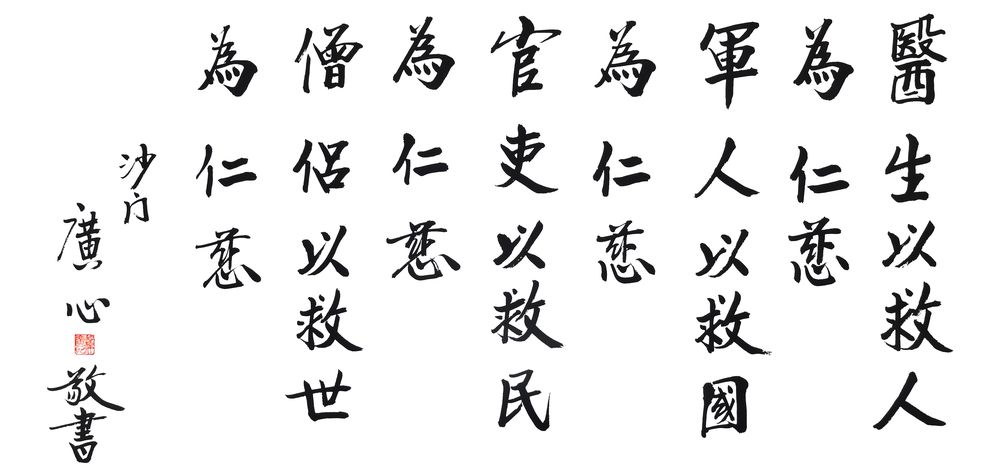 醫生以救人
為仁慈
軍人以救國
為仁慈
官吏以救民
為仁慈
僧侶以救世
為仁慈
沙门
廣心
敬書